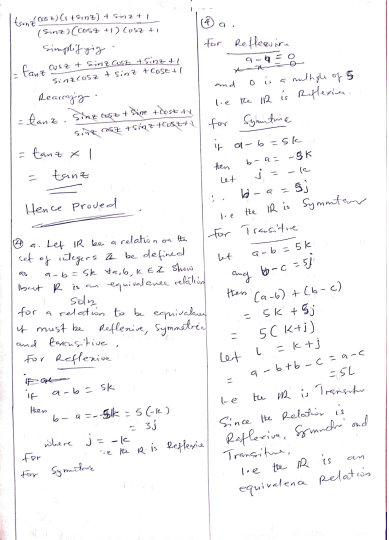 tanz cosz(1+sinz) + sinz + 1
(sinz)(cosz + 1) cosz + 1
Simplifying
= tanz cosz + sinz cosz + sinz + 1
sinz cosz + sinz + cosz + 1
Rearraging.
= tanz · sinz cosz + sinz + cosz + 1
sinz cosz + sinz + cosz + 1
= tanz × 1
= tanz
Hence Proved.
④ a. Let IR be a relation on the
set of integers Z be defined
as a-b = 5k ∀a,b,k ∈ Z show
that R is an equivalence relation
Soln
for a relation to be equivalen
it must be Reflexive, Symmetric
and transitive.
For Reflexive
if a-b = 5k
then
b-a = -5k = 5(-k)
= 3j
where j = -k
for i.e the IR is Reflexive
for Symmetric
④ a.
for Reflexive
a-a = 0
and 0 is a multiple of 5
i.e the IR is Reflexive.
for Symmetric
if a-b = 5k
then b-a = -5k
Let j = -k
∴ b-a = 5j
i.e the IR is Symmetric
for Transitive
let a-b = 5k
and b-c = 5j
then (a-b) + (b-c)
= 5k + 5j
= 5(k+j)
Let l = k+j
= a-b+b-c = a-c
= 5L
i.e the IR is Transitive
Since the Relation is
Reflexive, Symmetric and
Transitive.
i.e the IR is an
equivalence Relation